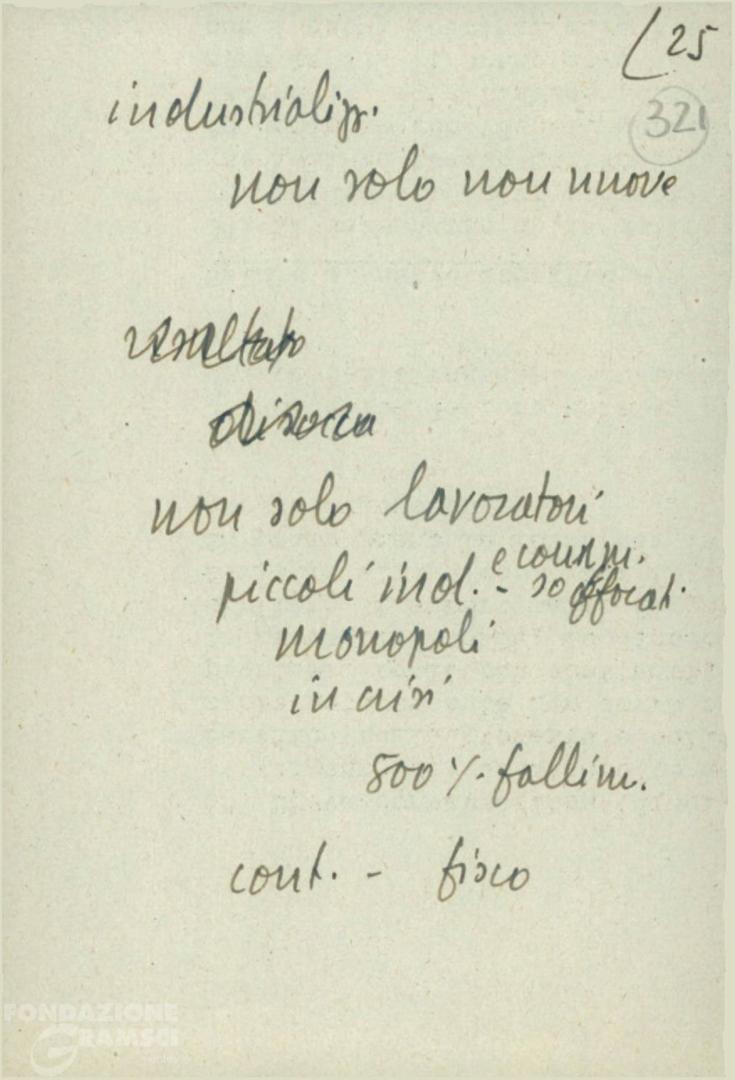 (25
321
industrializz.
non solo non nuove
risultato
disocca
non solo lavoratori
e comm.
piccoli ind. - soffocati
monopoli
in crisi
800 %. fallim.
cont. - fisco
FONDAZIONE
GRAMSCI